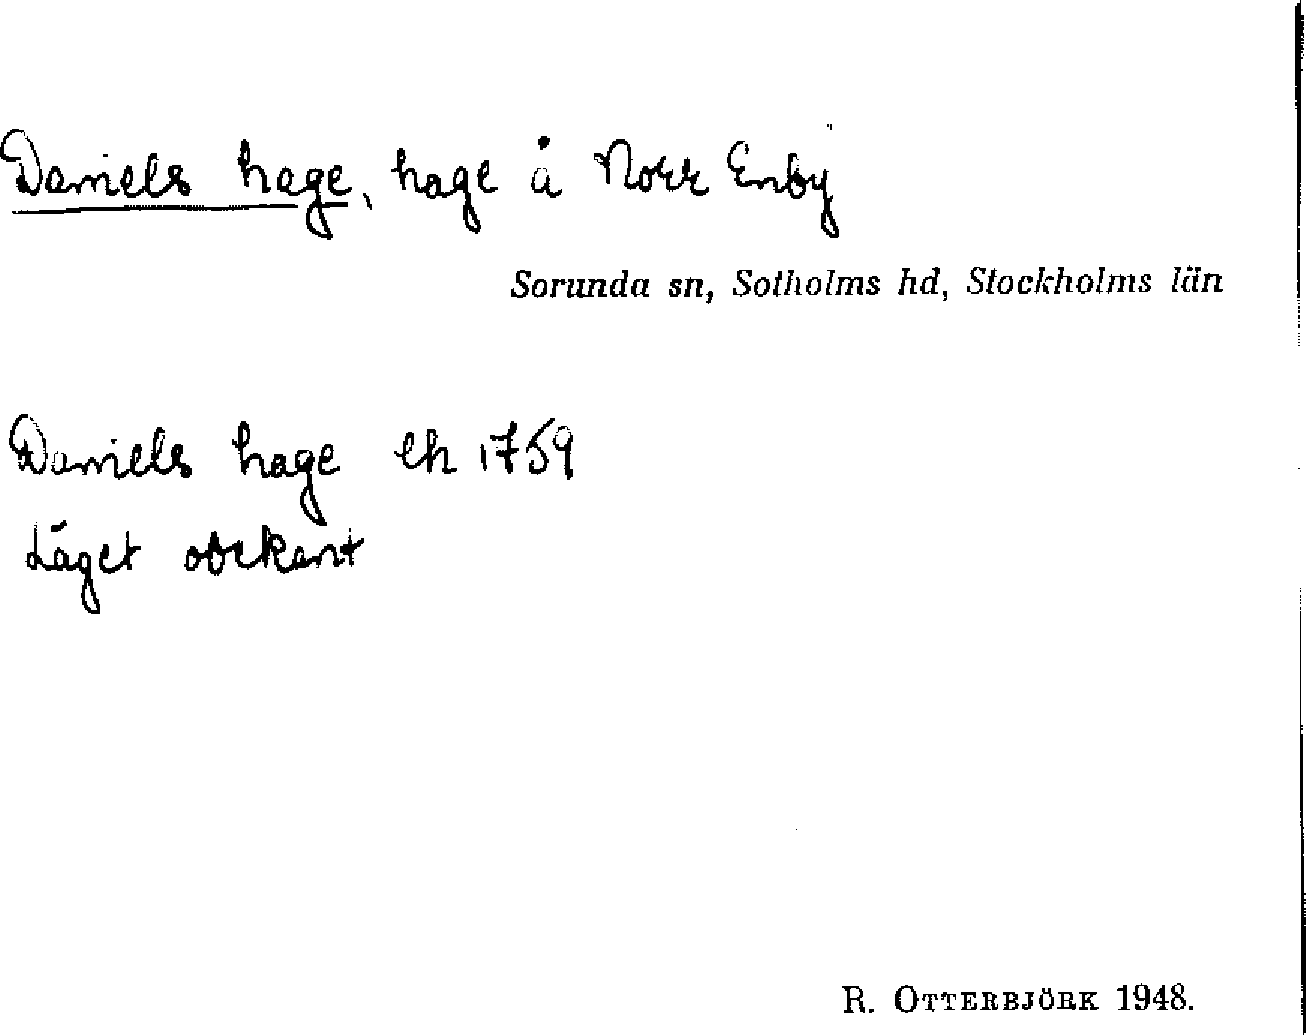 Daniels hage, hage å Norr Enby
Sorunda sn, Sotholms hd, Stockholms län
Daniels hage eh 1759
Läget obekant
R. OTTERBJÖRK 1948.